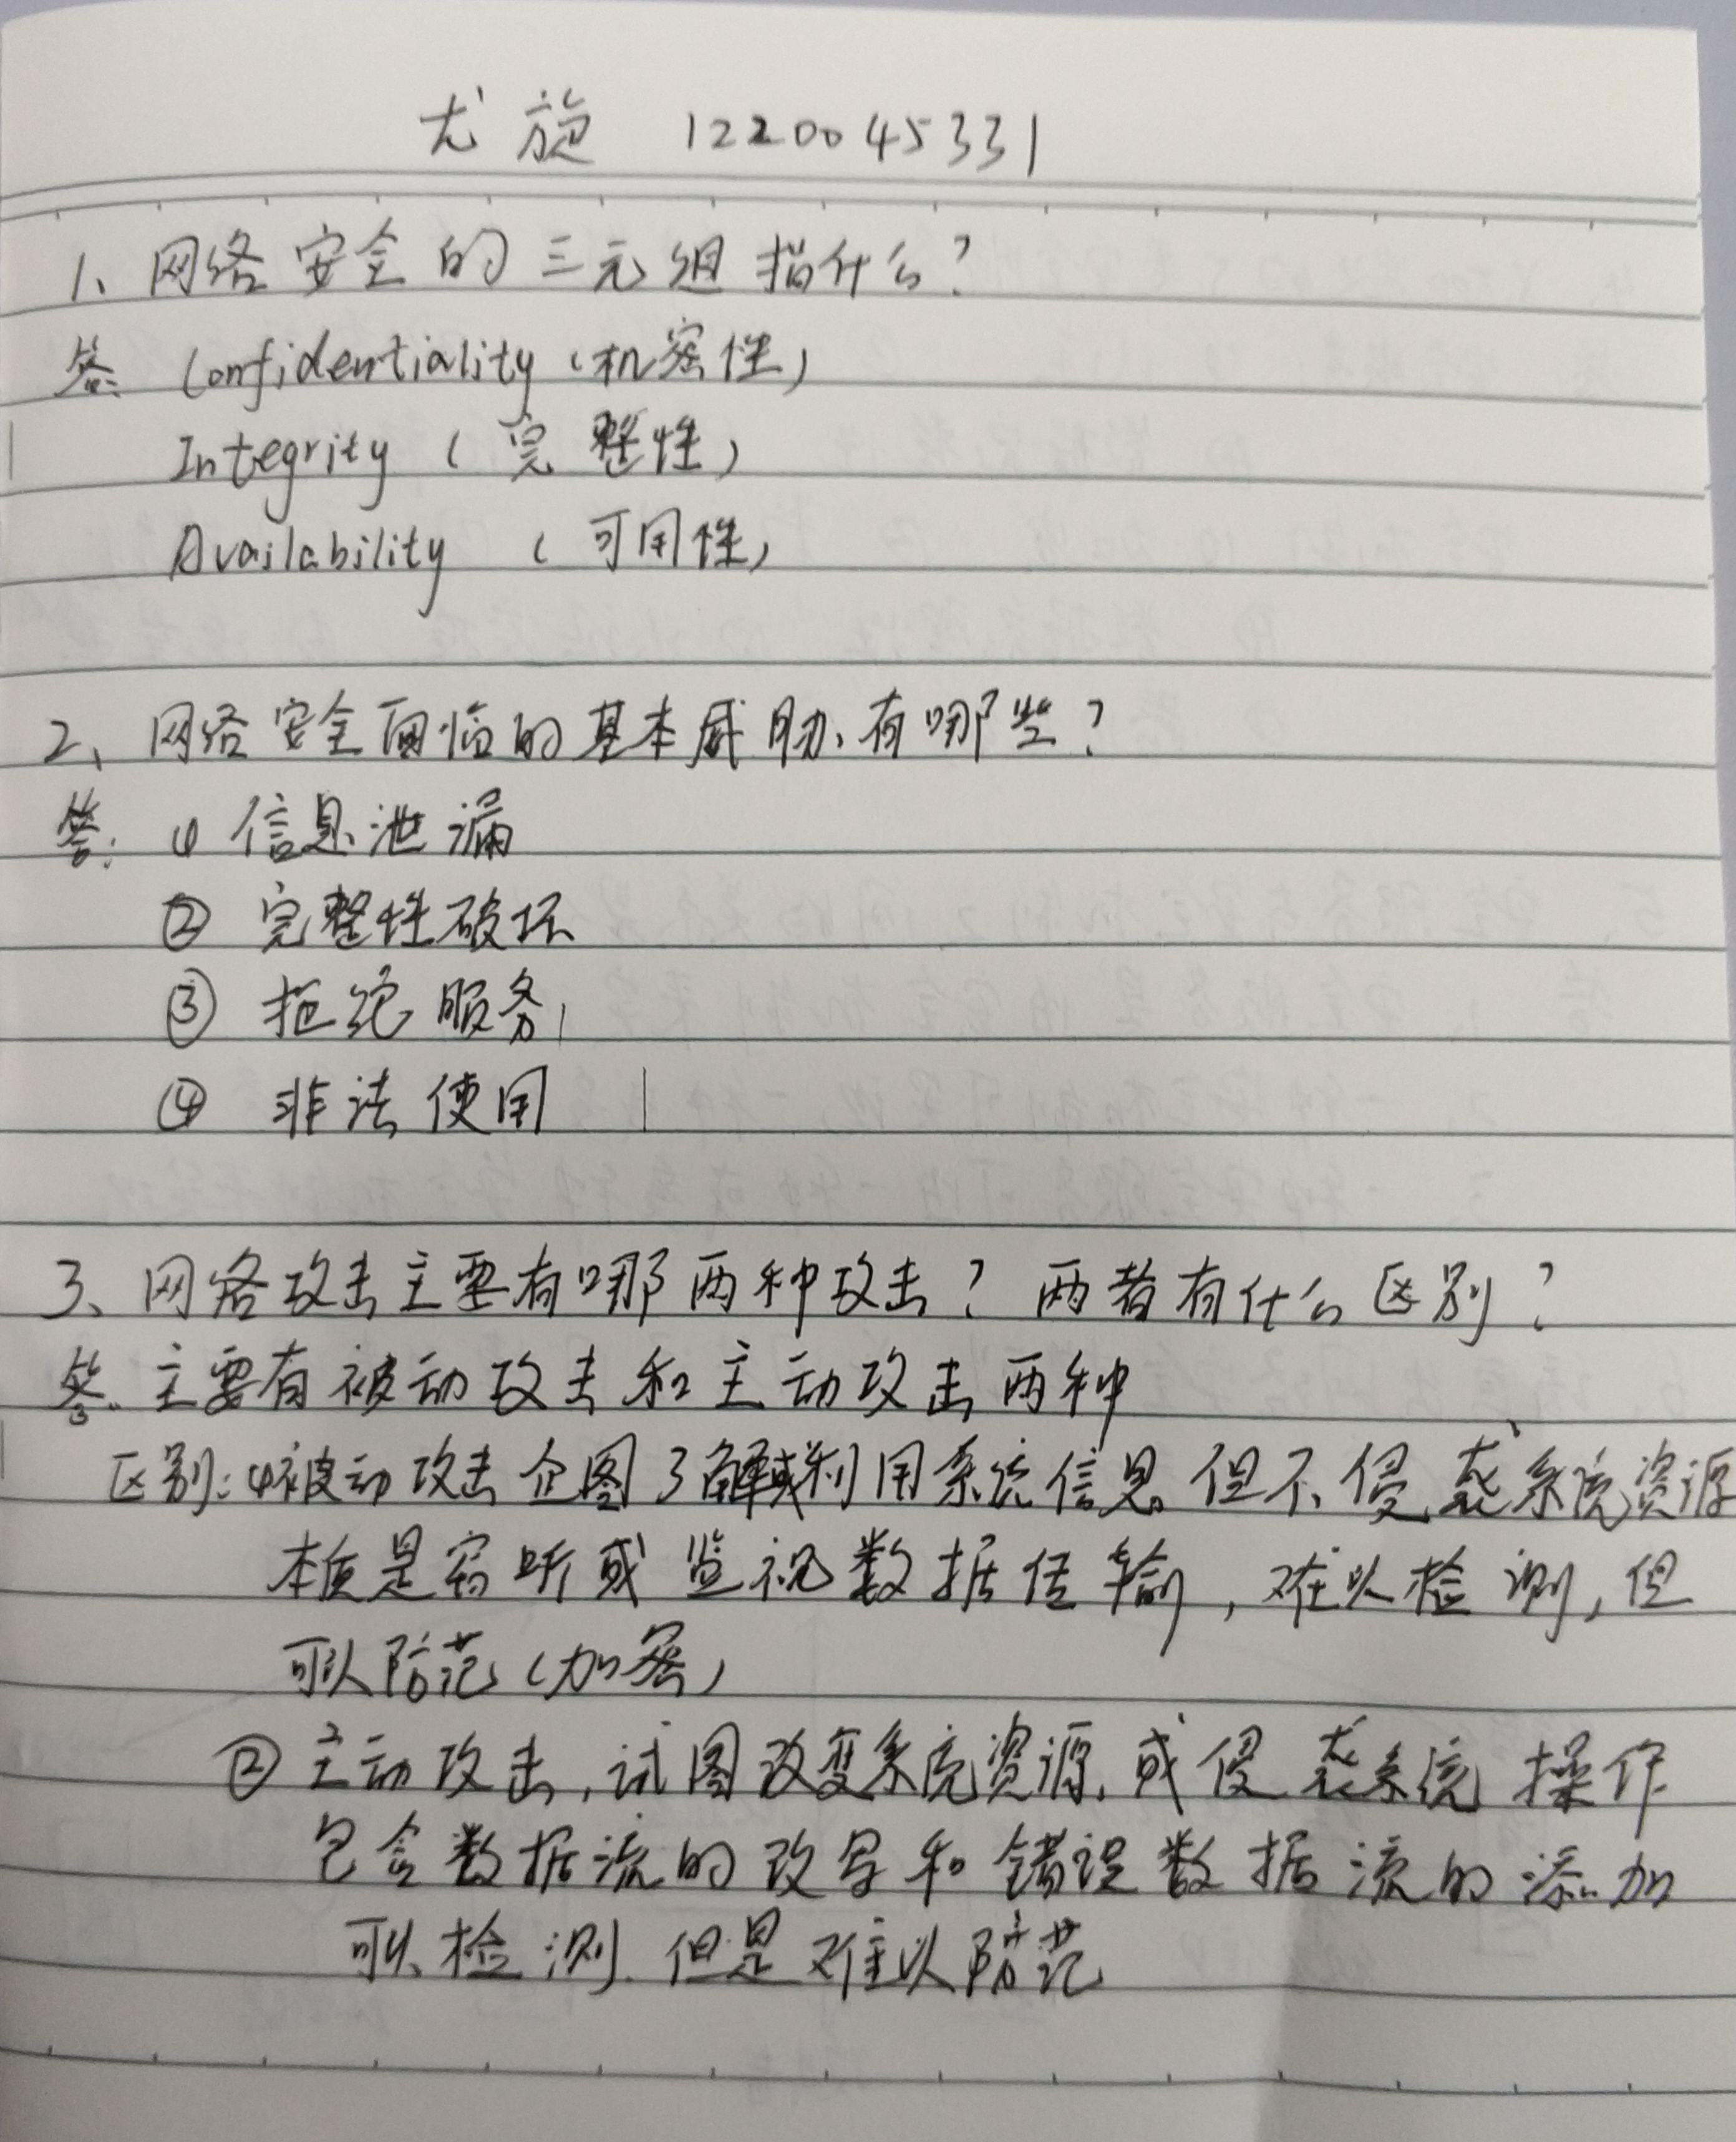 尤旋 1220045331
1、网络安全的三元组指什么？
答: Confidentiality (机密性)
Integrity (完整性)
Availability (可用性)
2、网络安全面临的基本威胁有哪些？
答: ① 信息泄漏
② 完整性破坏
③ 拒绝服务
④ 非法使用
3、网络攻击主要有哪两种攻击？两者有什么区别？
答: 主要有被动攻击和主动攻击两种
区别: ①被动攻击企图了解或利用系统信息但不侵袭系统资源
本质是窃听或监视数据传输，难以检测，但
可以防范(加密)
② 主动攻击，试图改变系统资源，或侵袭系统操作
包含数据流的改写和错误数据流的添加
可以检测.但是难以防范